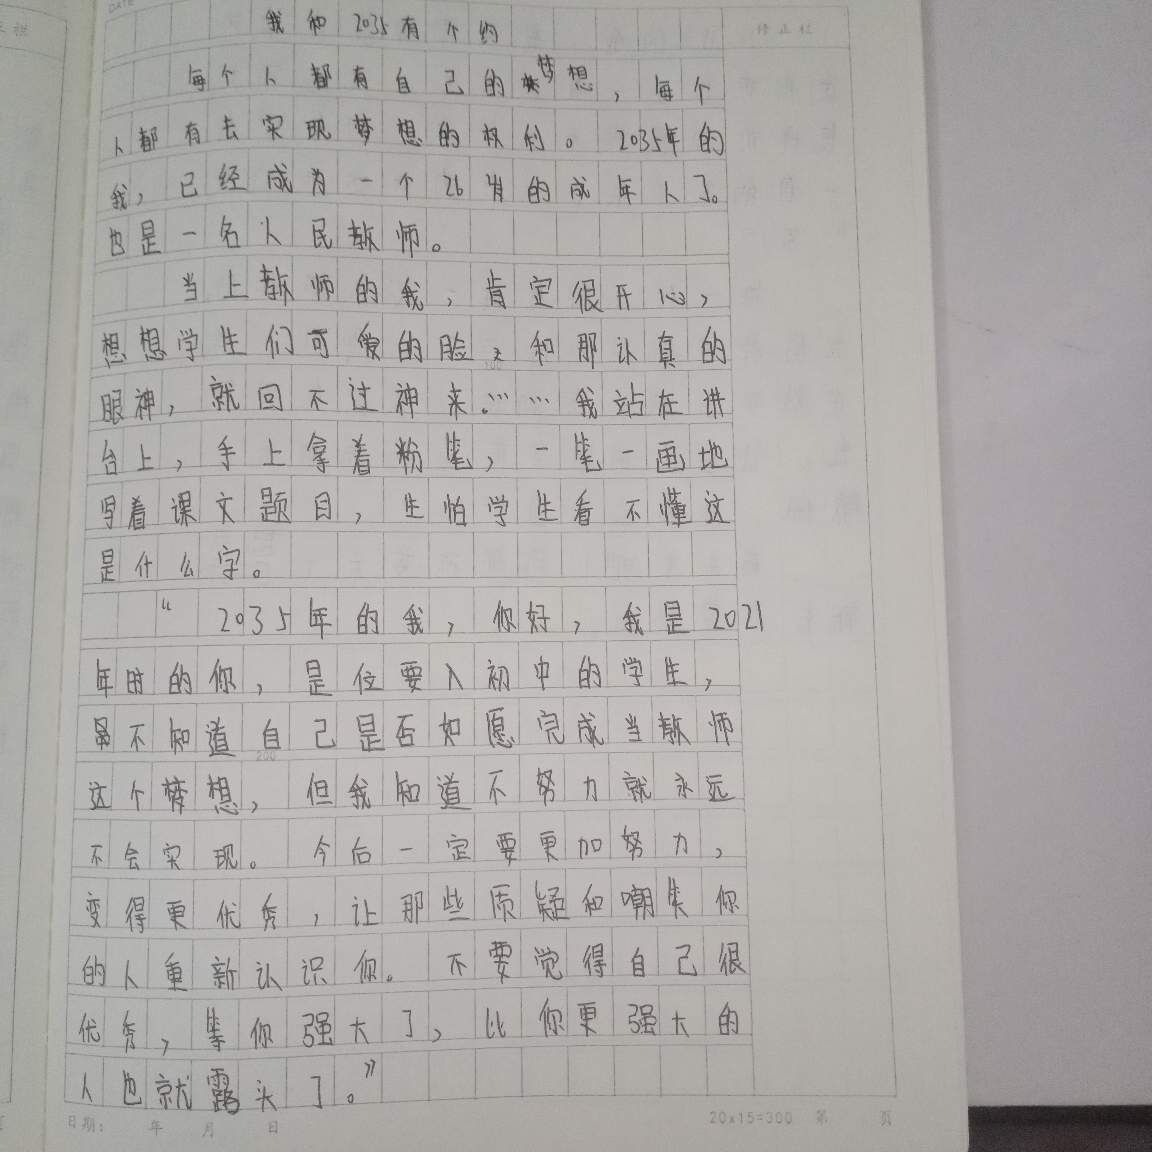 DATE
我和2035有个约
修正栏
每个人都有自己的梦想，每个
人都有去实现梦想的权利。2035年的
我，已经成为一个26岁的成年人了。
也是一名人民教师。
当上教师的我，肯定很开心，
想想学生们可爱的脸，和那认真的
眼神，就回不过神来……我站在讲
台上，手上拿着粉笔，一笔一画地
写着课文题目，生怕学生看不懂这
是什么字。
“2035年的我，你好，我是2021
年时的你，是位要入初中的学生，
虽不知道自己是否如愿完成当教师
这个梦想，但我知道不努力就永远
不会实现。今后一定要更加努力，
变得更优秀，让那些质疑和嘲笑你
的人重新认识你。不要觉得自己很
优秀，等你强大了，比你更强大的
人也就露头了。”
日期： 年 月 日
20x15=300 第 页